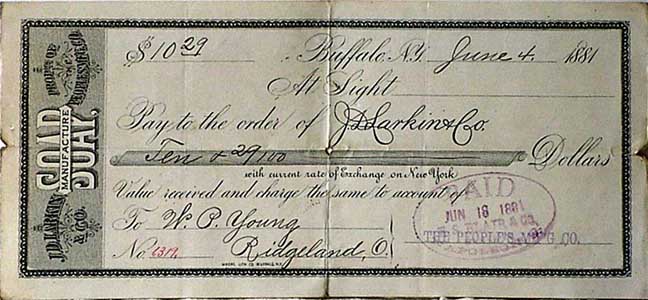 $10 29 Buffalo, N.Y. June 4. 1881
At Sight
Pay to the order of J.D. Larkin & Co.
Ten & 29/100 Dollars
with current rate of Exchange on New York
Value received and charge the same to account of
To W. P. Young
No. Ridgeland, O.
J.D. LARKIN & CO.
SOAP
MANUFACTURE
PROP'S OF
PEOPLES M'F'G CO.
PAID
JUN 16 1881
THE PEOPLE'S M'F'G CO.